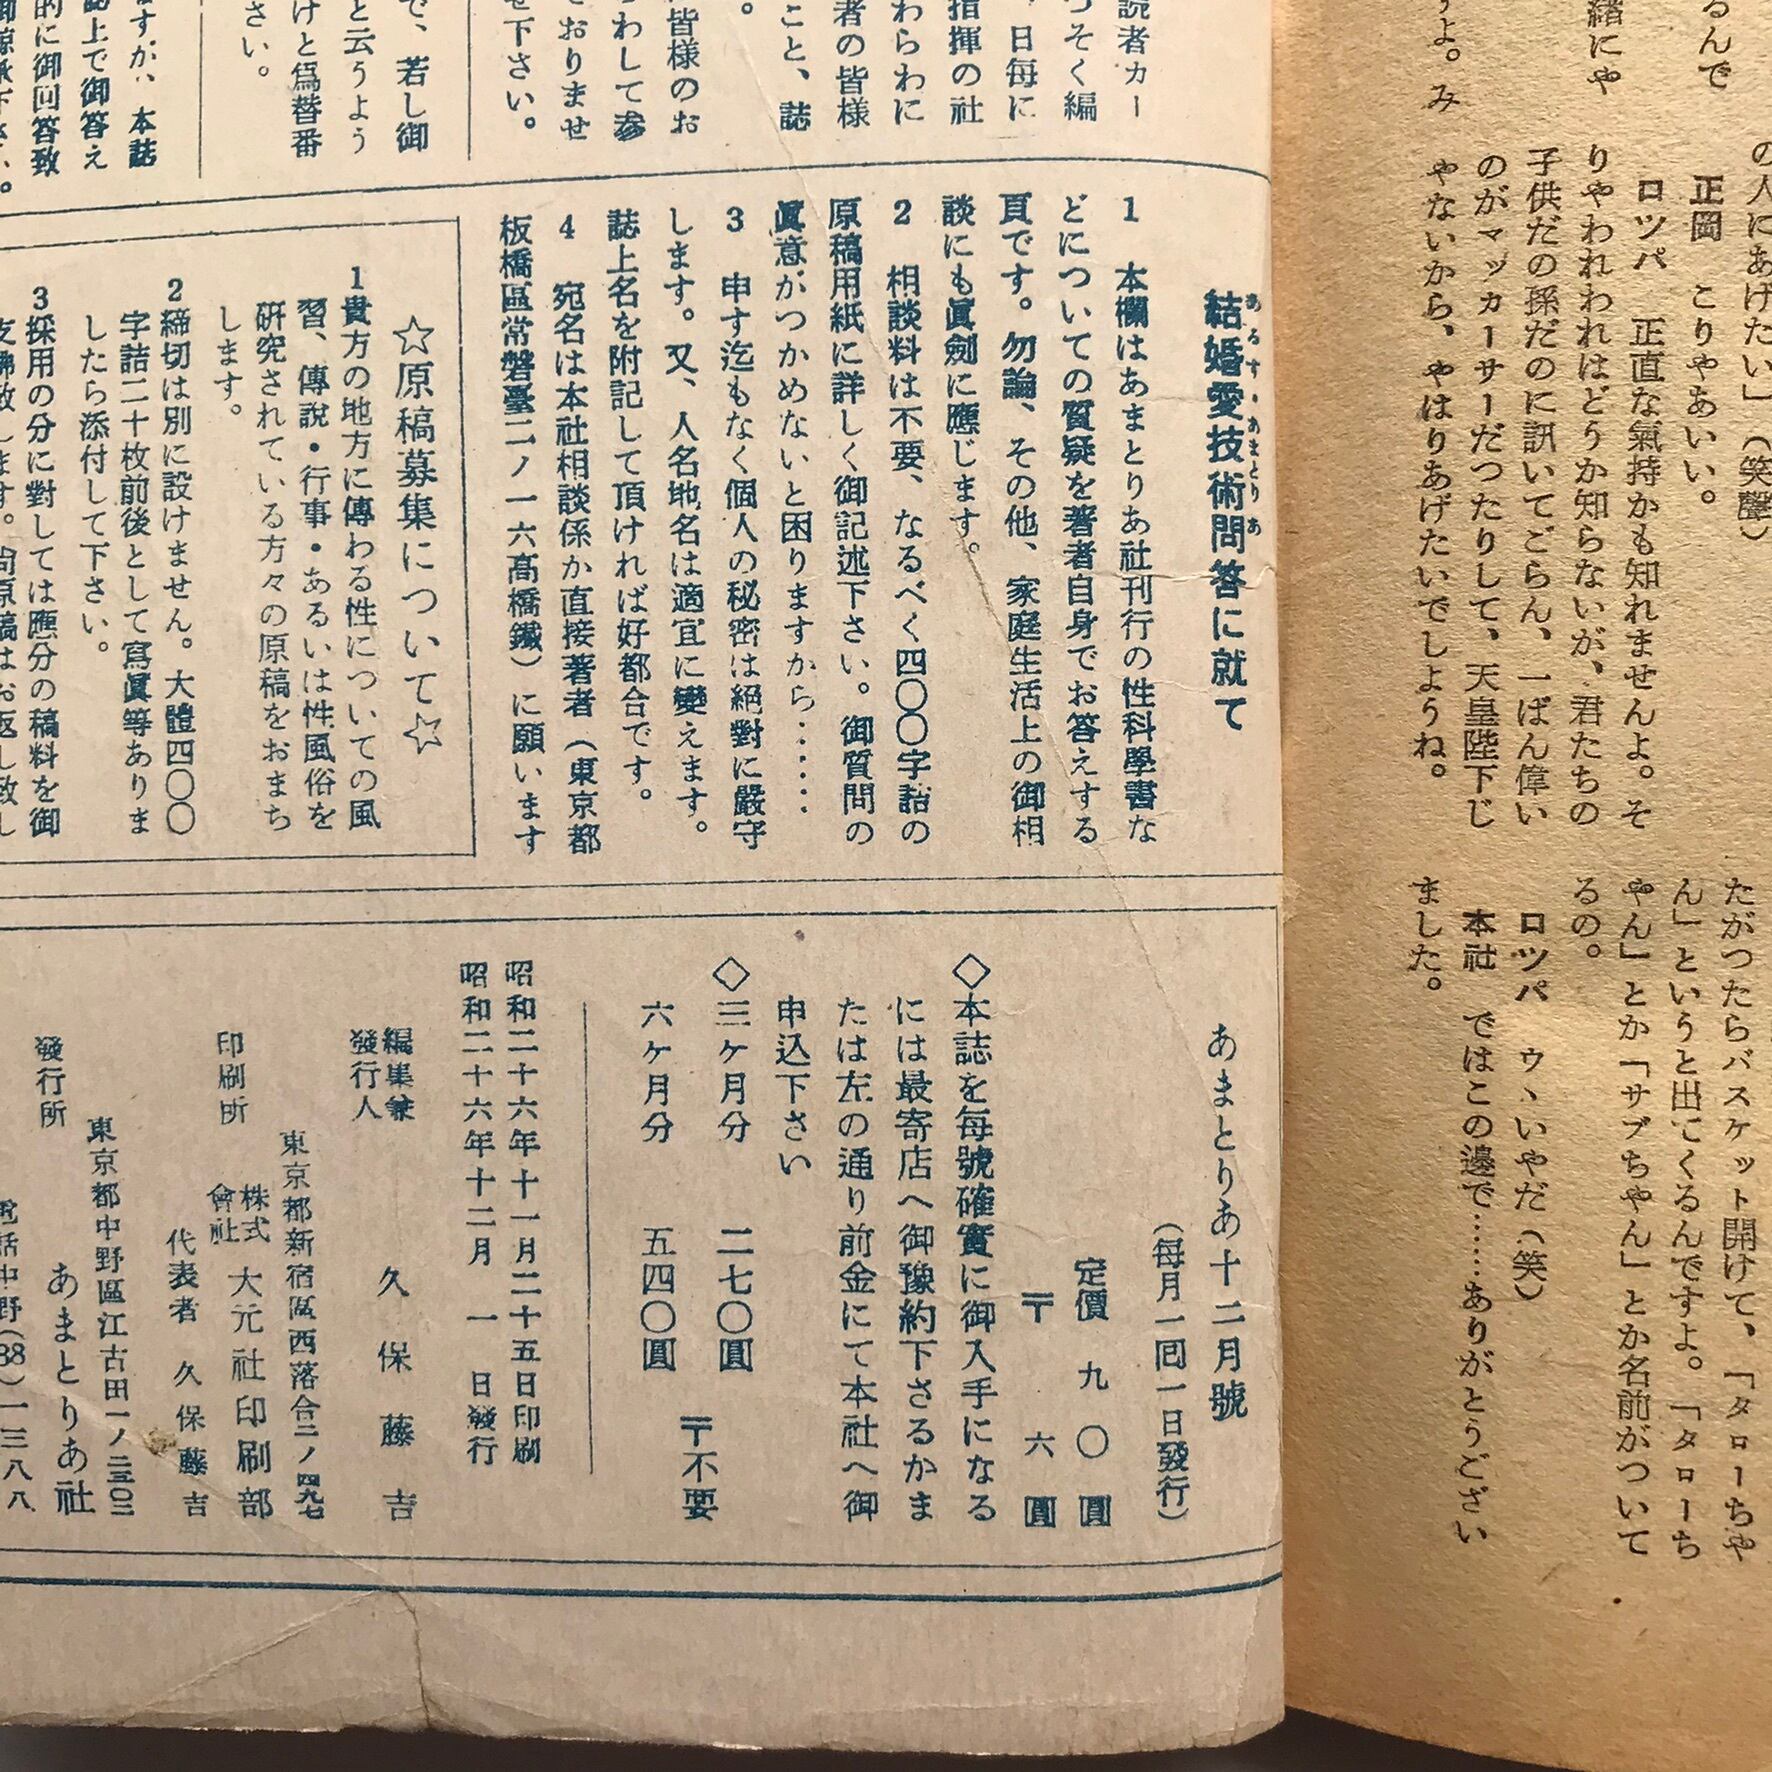 の人にあげたい」（笑聲）
正岡　こりやあいい。
ロツパ　正直な氣持かも知れませんよ。そ
りやわれわれはどうか知らないが、君たちの
子供だの孫だのに訊いてごらん、一ばん偉い
のがマッカーサーだつたりして、天皇陛下じ
やないから、やはりあげたいでしようね。
たがつたらバスケット開けて、「タローちや
ん」というと出てくるんですよ。「タローち
やん」とか「サブちやん」とか名前がついて
るの。
ロツパ　ウヽいやだ（笑）
本社　ではこの邊で……ありがとうござい
ました。
るんで
緒にや
うよ。み
読者カー
つそく編
日毎に
指揮の社
わらわに
者の皆様
こと、誌
。
皆様のお
わして参
ておりませ
せ下さい。
で、若し御
と云うよう
けと爲替番
さい。
ますが、本誌
誌上で御答え
的に御回答致
結婚愛技術問答に就て
あるす・あまとりあ
1　本欄はあまとりあ社刊行の性科學書な
どについての質疑を著者自身でお答えする
頁です。勿論、その他、家庭生活上の御相
談にも眞劍に應じます。
2　相談料は不要、なるべく四〇〇字詰の
原稿用紙に詳しく御記述下さい。御質問の
眞意がつかめないと困りますから……
3　申す迄もなく個人の秘密は絕對に嚴守
します。又、人名地名は適宜に變えます。
誌上名を附記して頂ければ好都合です。
4　宛名は本社相談係か直接著者（東京都
板橋區常磐臺二ノ一六高橋鐵）に願います
☆原稿募集について☆
1貴方の地方に傳わる性についての風
習、傳說・行事・あるいは性風俗を
研究されている方々の原稿をおまち
します。
2締切は別に設けません。大體四〇〇
字詰二十枚前後として寫眞等ありま
したら添付して下さい。
3採用の分に對しては應分の稿料を御
支拂致します。尚原稿はお返し致し
あまとりあ十二月號
（毎月一回一日發行）
定價　九〇圓
〒　六圓
◇本誌を毎號確實に御入手になる
には最寄店へ御豫約下さるかま
たは左の通り前金にて本社へ御
申込下さい
◇三ケ月分　二七〇圓
〒不要
六ケ月分　五四〇圓
昭和二十六年十一月二十五日印刷
昭和二十六年十二月　一　日發行
編集兼
發行人　久保藤吉
東京都新宿區西落合二ノ四九七
印刷所　株式會社　大元社印刷部
代表者　久保藤吉
東京都中野區江古田一ノ二三〇二
發行所　あまとりあ社
電話中野(38)一三八八